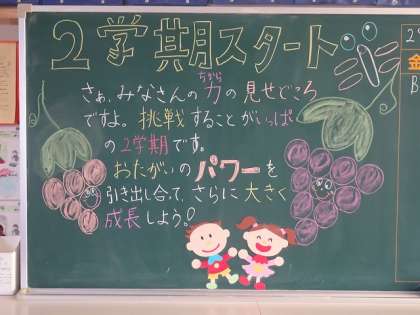 2学期スタート
さぁ、みなさんの力の見せどころ
ちから
ですよ。挑戦することがいっぱい
の2学期です。
おたがいのパワーを
引き出し合って、さらに大きく
成長しよう!
金